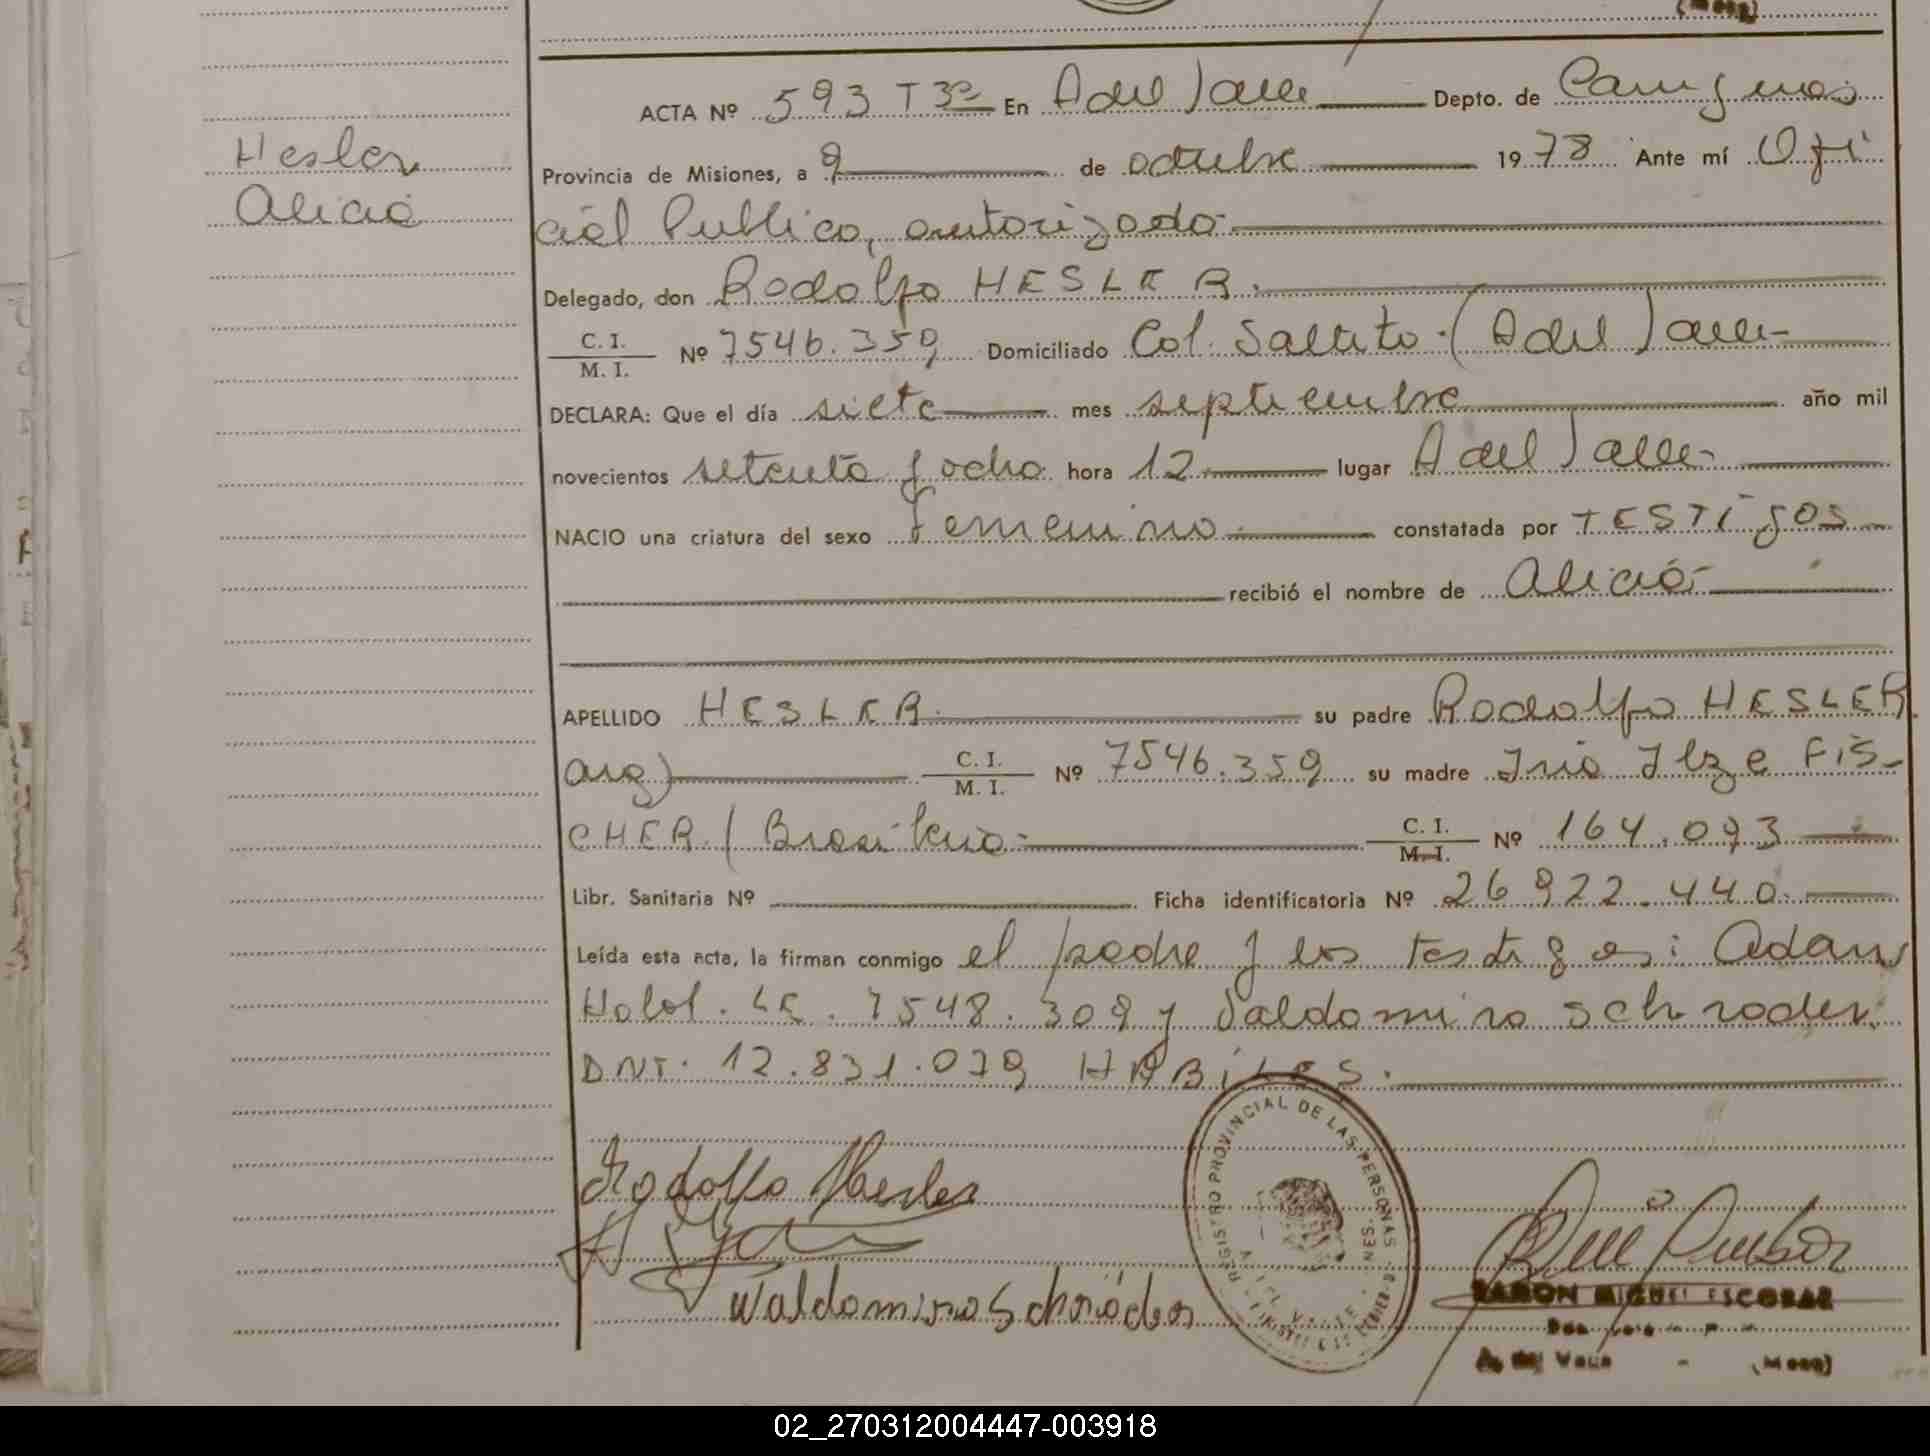 (Mnes)
ACTA Nº 593 T3º En A del Valle Depto. de Cainguas
Hesler
Alicia
Provincia de Misiones, a 9 de octubre 1978 Ante mí Ofi
cial Publico, autorizado
Delegado, don Rodolfo HESLER.
C. I. / M. I. Nº 7546.359 Domiciliado Col. Saltito (A del Valle
DECLARA: Que el día siete mes septiembre año mil
novecientos setenta y ocho hora 12 lugar A del Valle
NACIO una criatura del sexo femenino constatada por TESTigos
recibió el nombre de Alicia
APELLIDO HESLER su padre Rodolfo HESLER
arg) C. I. / M. I. Nº 7546.359 su madre Iria Ilze FIS-
CHER ( Brasileria C. I. / M. I. Nº 164.093
Libr. Sanitaria Nº Ficha identificatoria Nº 26 922.440
Leída esta acta, la firman conmigo el padre y los testigos: Adan
LE. 7548.309 y Valdomiro Schroder
DNI. 12.831.079 HABILES.
Rodolfo Hesler
Waldomiro Schröder
REGISTRO PROVINCIAL DE LAS PERSONAS
RAMON MIGUEL ESCOBAR
A. del Valle (Mnes)
02_270312004447-003918